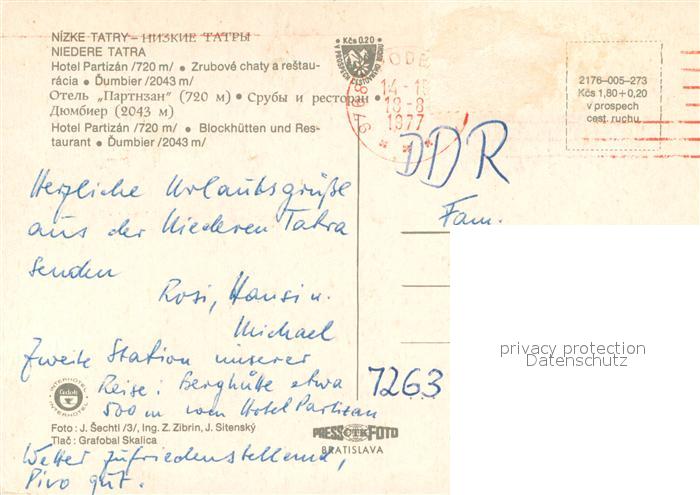 NÍZKE TATRY – НИЗКИЕ ТАТРЫ
NIEDERE TATRA
Hotel Partizán /720 m/ • Zrubové chaty a reštau-
rácia • Ďumbier /2043 m/
Отель „Партизан" (720 м) • Срубы и ресторан •
Дюмбиер (2043 м)
Hotel Partizán /720 m/ • Blockhütten und Res-
taurant • Ďumbier /2043 m/
Kčs 0.20
V PROSPECH CESTOVNÉHO RUCHU
976 81
14-15
18-8
1977
2176-005-273
Kčs 1,80+0,20
v prospech
cest. ruchu
DDR
Herzliche Urlaubsgrüße
aus der Niederen Tatra
senden
Rosi, Hansi u.
Michael
Zweite Station unserer
Reise: Berghütte etwa
500 m vom Hotel Partizan
Wetter zufriedenstellend,
Pivo gut.
Fam.
7263
privacy protection
Datenschutz
INTERHOTEL
Čedok
INTERHOTEL
Foto: J. Šechtl /3/, Ing. Z. Zibrin, J. Sitenský
Tlač: Grafobal Skalica
PRESS ČTK FOTO
BRATISLAVA